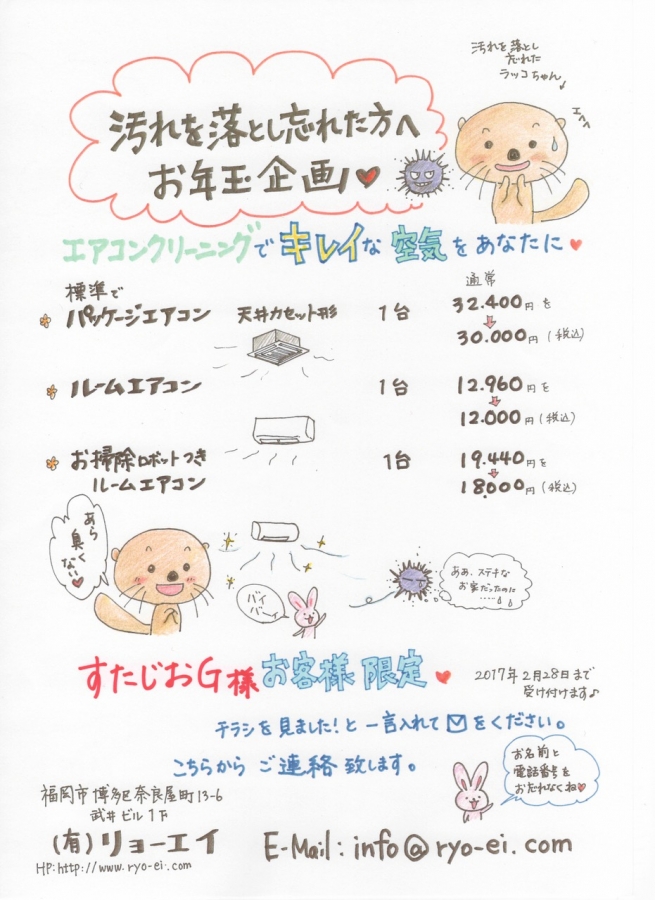 汚れを落とし
忘れた
ラッコちゃん
汚れを落とし忘れた方へ
お年玉企画
エへへ
エアコンクリーニングでキレイな空気をあなたに
標準で
通常
パッケージエアコン 天井カセット形 1台 32.400円を
30.000円(税込)
ルームエアコン 1台 12.960円を
12.000円(税込)
お掃除ロボットつき 1台 19.440円を
ルームエアコン 18000円(税込)
あら
臭くない
バイ
バーイ
ああ、ステキな
お家だったのに
‥‥
すたじおG様お客様限定
2017年2月28日まで
受け付けます♪
チラシを見ました!と一言入れて✉をください。
こちらからご連絡致します。
お名前と
電話番号を
お忘れなくね
福岡市博多区奈良屋町13-6
武井ビル1F
(有)リョーエイ E-Mail:info@ryo-ei.com
HP:http://www.ryo-ei.com